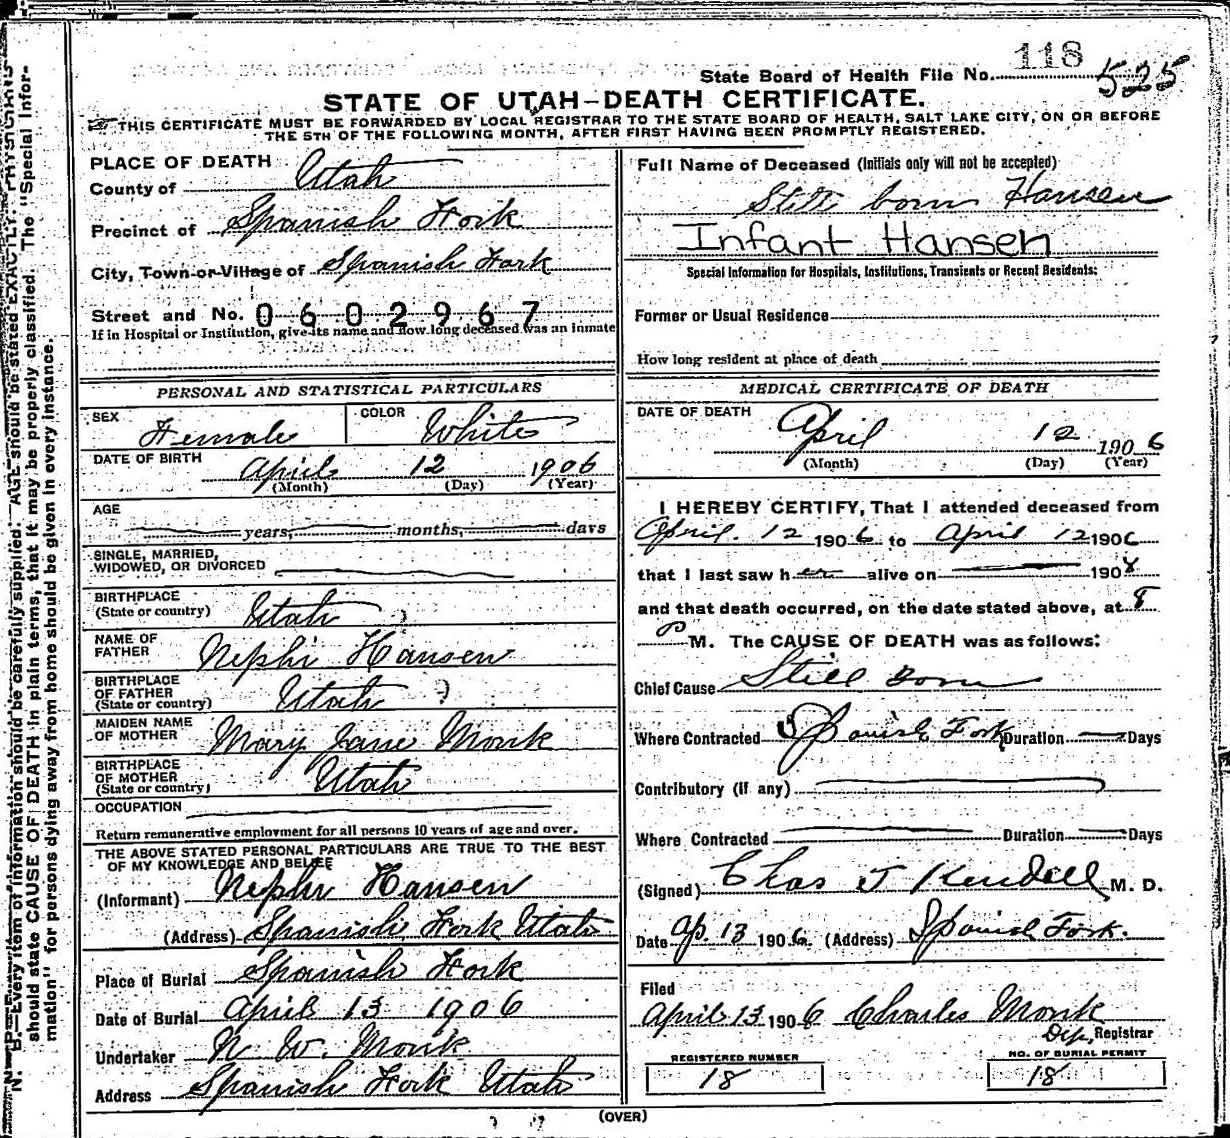 118
State Board of Health File No. 525
STATE OF UTAH-DEATH CERTIFICATE.
THIS CERTIFICATE MUST BE FORWARDED BY LOCAL REGISTRAR TO THE STATE BOARD OF HEALTH, SALT LAKE CITY, ON OR BEFORE
THE 5TH OF THE FOLLOWING MONTH, AFTER FIRST HAVING BEEN PROMPTLY REGISTERED.
PLACE OF DEATH
County of Utah
Precinct of Spanish Fork
City, Town or Village of Spanish Fork
Street and No. 0602967
If in Hospital or Institution, give its name and how long deceased was an inmate
PERSONAL AND STATISTICAL PARTICULARS
SEX Female COLOR White
DATE OF BIRTH April 12 1906
(Month) (Day) (Year)
AGE
years, months, days
SINGLE, MARRIED,
WIDOWED, OR DIVORCED
BIRTHPLACE
(State or country) Utah
NAME OF
FATHER Nephi Hansen
BIRTHPLACE
OF FATHER
(State or country) Utah
MAIDEN NAME
OF MOTHER Mary Jane Monk
BIRTHPLACE
OF MOTHER
(State or country) Utah
OCCUPATION
Return remunerative employment for all persons 10 years of age and over.
THE ABOVE STATED PERSONAL PARTICULARS ARE TRUE TO THE BEST
OF MY KNOWLEDGE AND BELIEF
(Informant) Nephi Hansen
(Address) Spanish Fork Utah
Place of Burial Spanish Fork
Date of Burial April 13 1906
Undertaker N. W. Monk
Address Spanish Fork Utah
Full Name of Deceased (Initials only will not be accepted)
Still born Hansen
Infant Hansen
Special Information for Hospitals, Institutions, Transients or Recent Residents:
Former or Usual Residence
How long resident at place of death
MEDICAL CERTIFICATE OF DEATH
DATE OF DEATH
April 12 1906
(Month) (Day) (Year)
I HEREBY CERTIFY, That I attended deceased from
April. 12 1906 to April 12 1906
that I last saw her alive on 190
and that death occurred, on the date stated above, at 8
P M. The CAUSE OF DEATH was as follows:
Chief Cause Still Born
Where Contracted Spanish Fork Duration Days
Contributory (if any)
Where Contracted Duration Days
(Signed) Chas J Kendell M. D.
Date Ap. 13 1906 (Address) Spanish Fork.
Filed
April 13 1906 Charles Monk
Dep, Registrar
REGISTERED NUMBER
18
NO. OF BURIAL PERMIT
18
(OVER)
N. B.—Every item of information should be carefully supplied. AGE should be stated EXACTLY. PHYSICIANS
should state CAUSE OF DEATH in plain terms, that it may be properly classified. The "Special Infor-
mation" for persons dying away from home should be given in every instance.